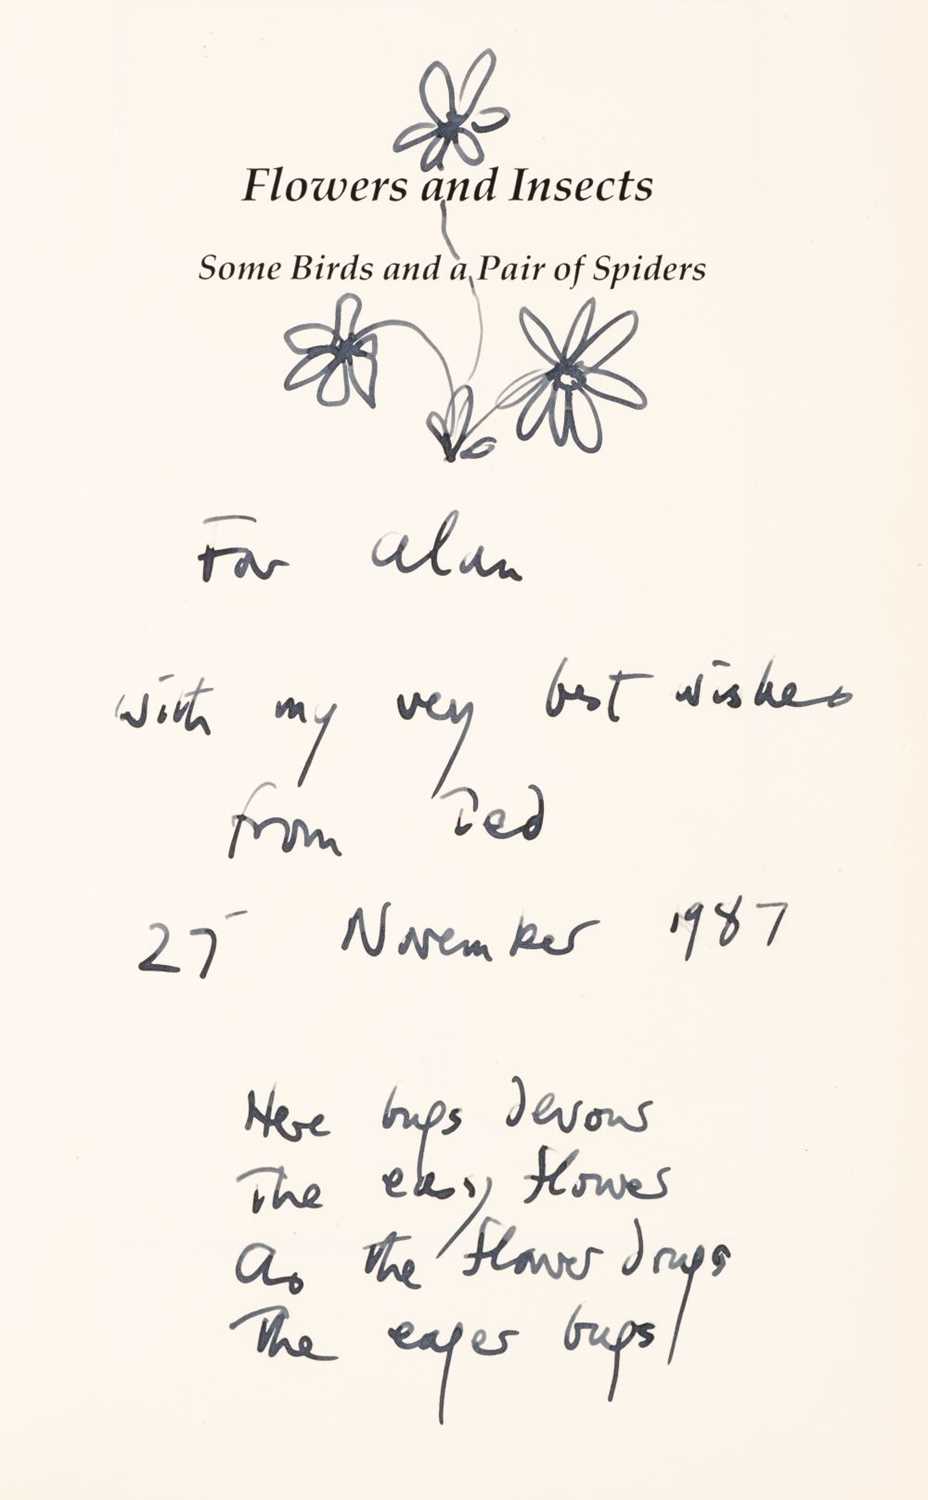 Flowers and Insects
Some Birds and a Pair of Spiders
For Alan
with my very best wishes
from Ted
27 November 1987
Here bugs devour
The easy flower
As the flower drugs
The eager bugs